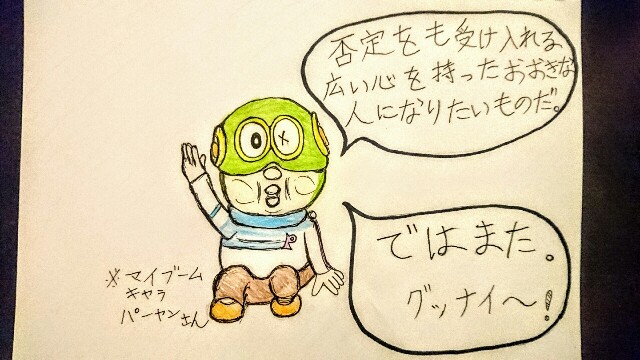 否定をも受け入れる
広い心を持ったおおきな
人になりたいものだ。
ではまた。
グッナイ〜!
※マイブーム
キャラ
パーヤンさん